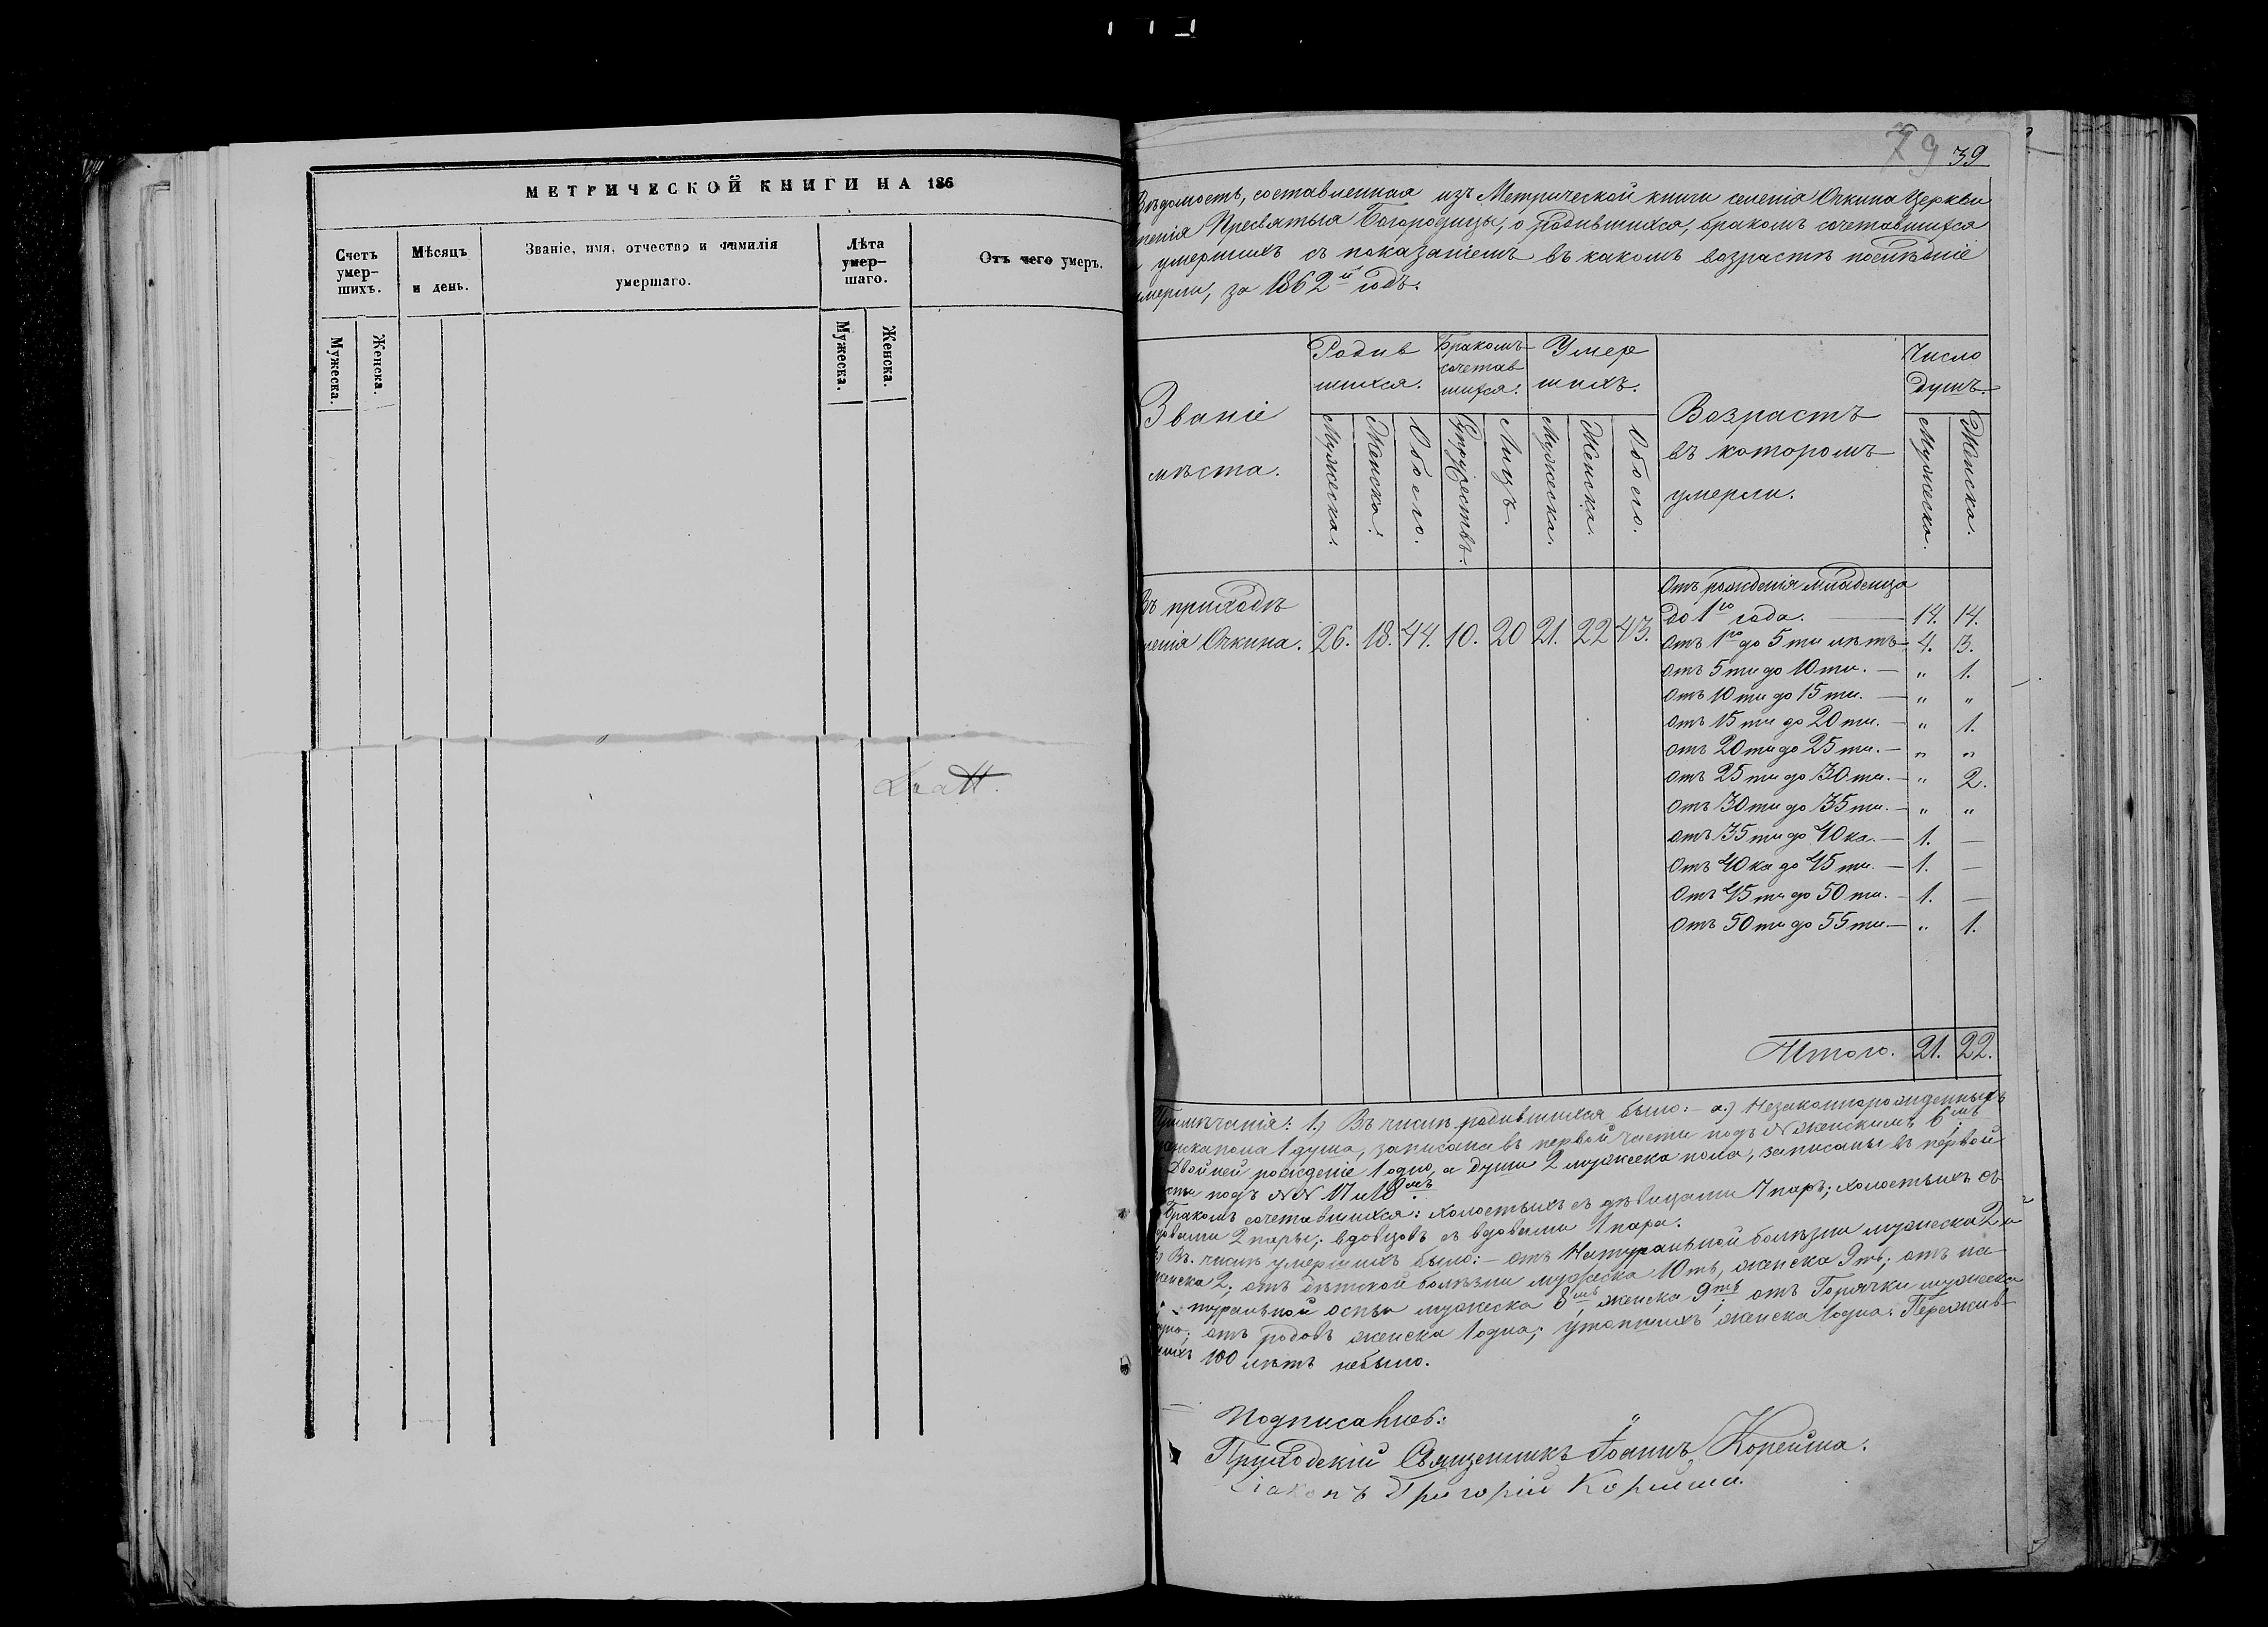 МЕТРИЧЕСКОЙ КНИГИ НА 186
Счетъ умер-шихъ.
Мѣсяцъ и день.
Званіе, имя, отчество и фамилія умершаго.
Лѣта умер-шаго.
Отъ чего умеръ.
Мужеска.
Женска.
Мужеска.
Женска.
79 39
Вѣдомость, составленная изъ Метрической книги селенія Очкина Церкви
пенія Пресвятыя Богородицы, о родившихся, бракомъ сочетавшихся
умершихъ съ показаніемъ въ какомъ возрастѣ послѣдніе
мерли, за 1862й годъ.
Званіе мѣста.
Родив шихся.
Бракомъ сочетав шихся.
Умер шихъ.
Возрастъ въ которомъ умерли.
Число душъ.
Мужеска.
Женска.
Обоего.
Супружествъ.
Лицъ.
Мужеска.
Женска.
Обоего.
Мужеска.
Женска.
Въ приходѣ
ленія Очкина. 26. 18. 44. 10. 20 21. 22 43.
Отъ рожденія младенца
до 1го года. — 14. 14.
Отъ 1го до 5ти лѣтъ — 4. 3.
Отъ 5ти до 10ти. — " 1.
Отъ 10ти до 15ти. — " "
Отъ 15ти до 20ти. — " 1.
Отъ 20ти до 25ти. — " "
Отъ 25ти до 30ти. — " 2.
Отъ 30ти до 35ти. — " "
Отъ 35ти до 40ка. — 1. —
Отъ 40ка до 45ти. — 1. —
Отъ 45ти до 50ти. — 1. —
Отъ 50ти до 55ти — " 1.
Итого. 21. 22.
Примѣчанія: 1) Въ числѣ родившихся было: – а) Незаконнорожденныхъ
женска пола 1 душа, записана въ первой части подъ № женскимъ 6мъ
Двойней рожденіе 1 одно, а души 2 мужеска пола, записаны въ первой
сти подъ №№ 17 и 18мъ.
Бракомъ сочетавшихся: холостыхъ съ дѣвицами 7 паръ; холостыхъ съ
довами 2 пары; вдовцовъ съ вдовами 1 пара.
3) Въ числѣ умершихъ было: – отъ Натуральной болѣзни мужеска 2 и
женска 2; отъ дѣтской болѣзни мужеска 10ть, женска 9ть; отъ на-
туральной оспы мужеска 8мь, женска 9ть; отъ Горячки мужеска
одна; отъ родовъ женска 1 одна; утопшихъ женска 1 одна. Пережив-
шихъ 100 лѣтъ небыло.
Подписались:
Приходскій Священникъ Іоаннъ Корейша.
Діаконъ Григорій Корейша.